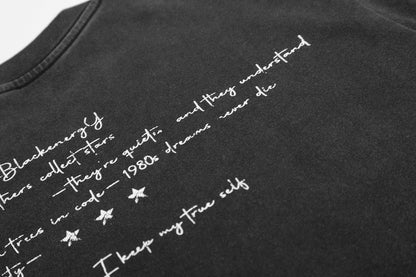 BlackenergY
thers collect stars
—they're quiet, and they understand
trees in code— 1980s dreams never die
ty—
I keep my true self